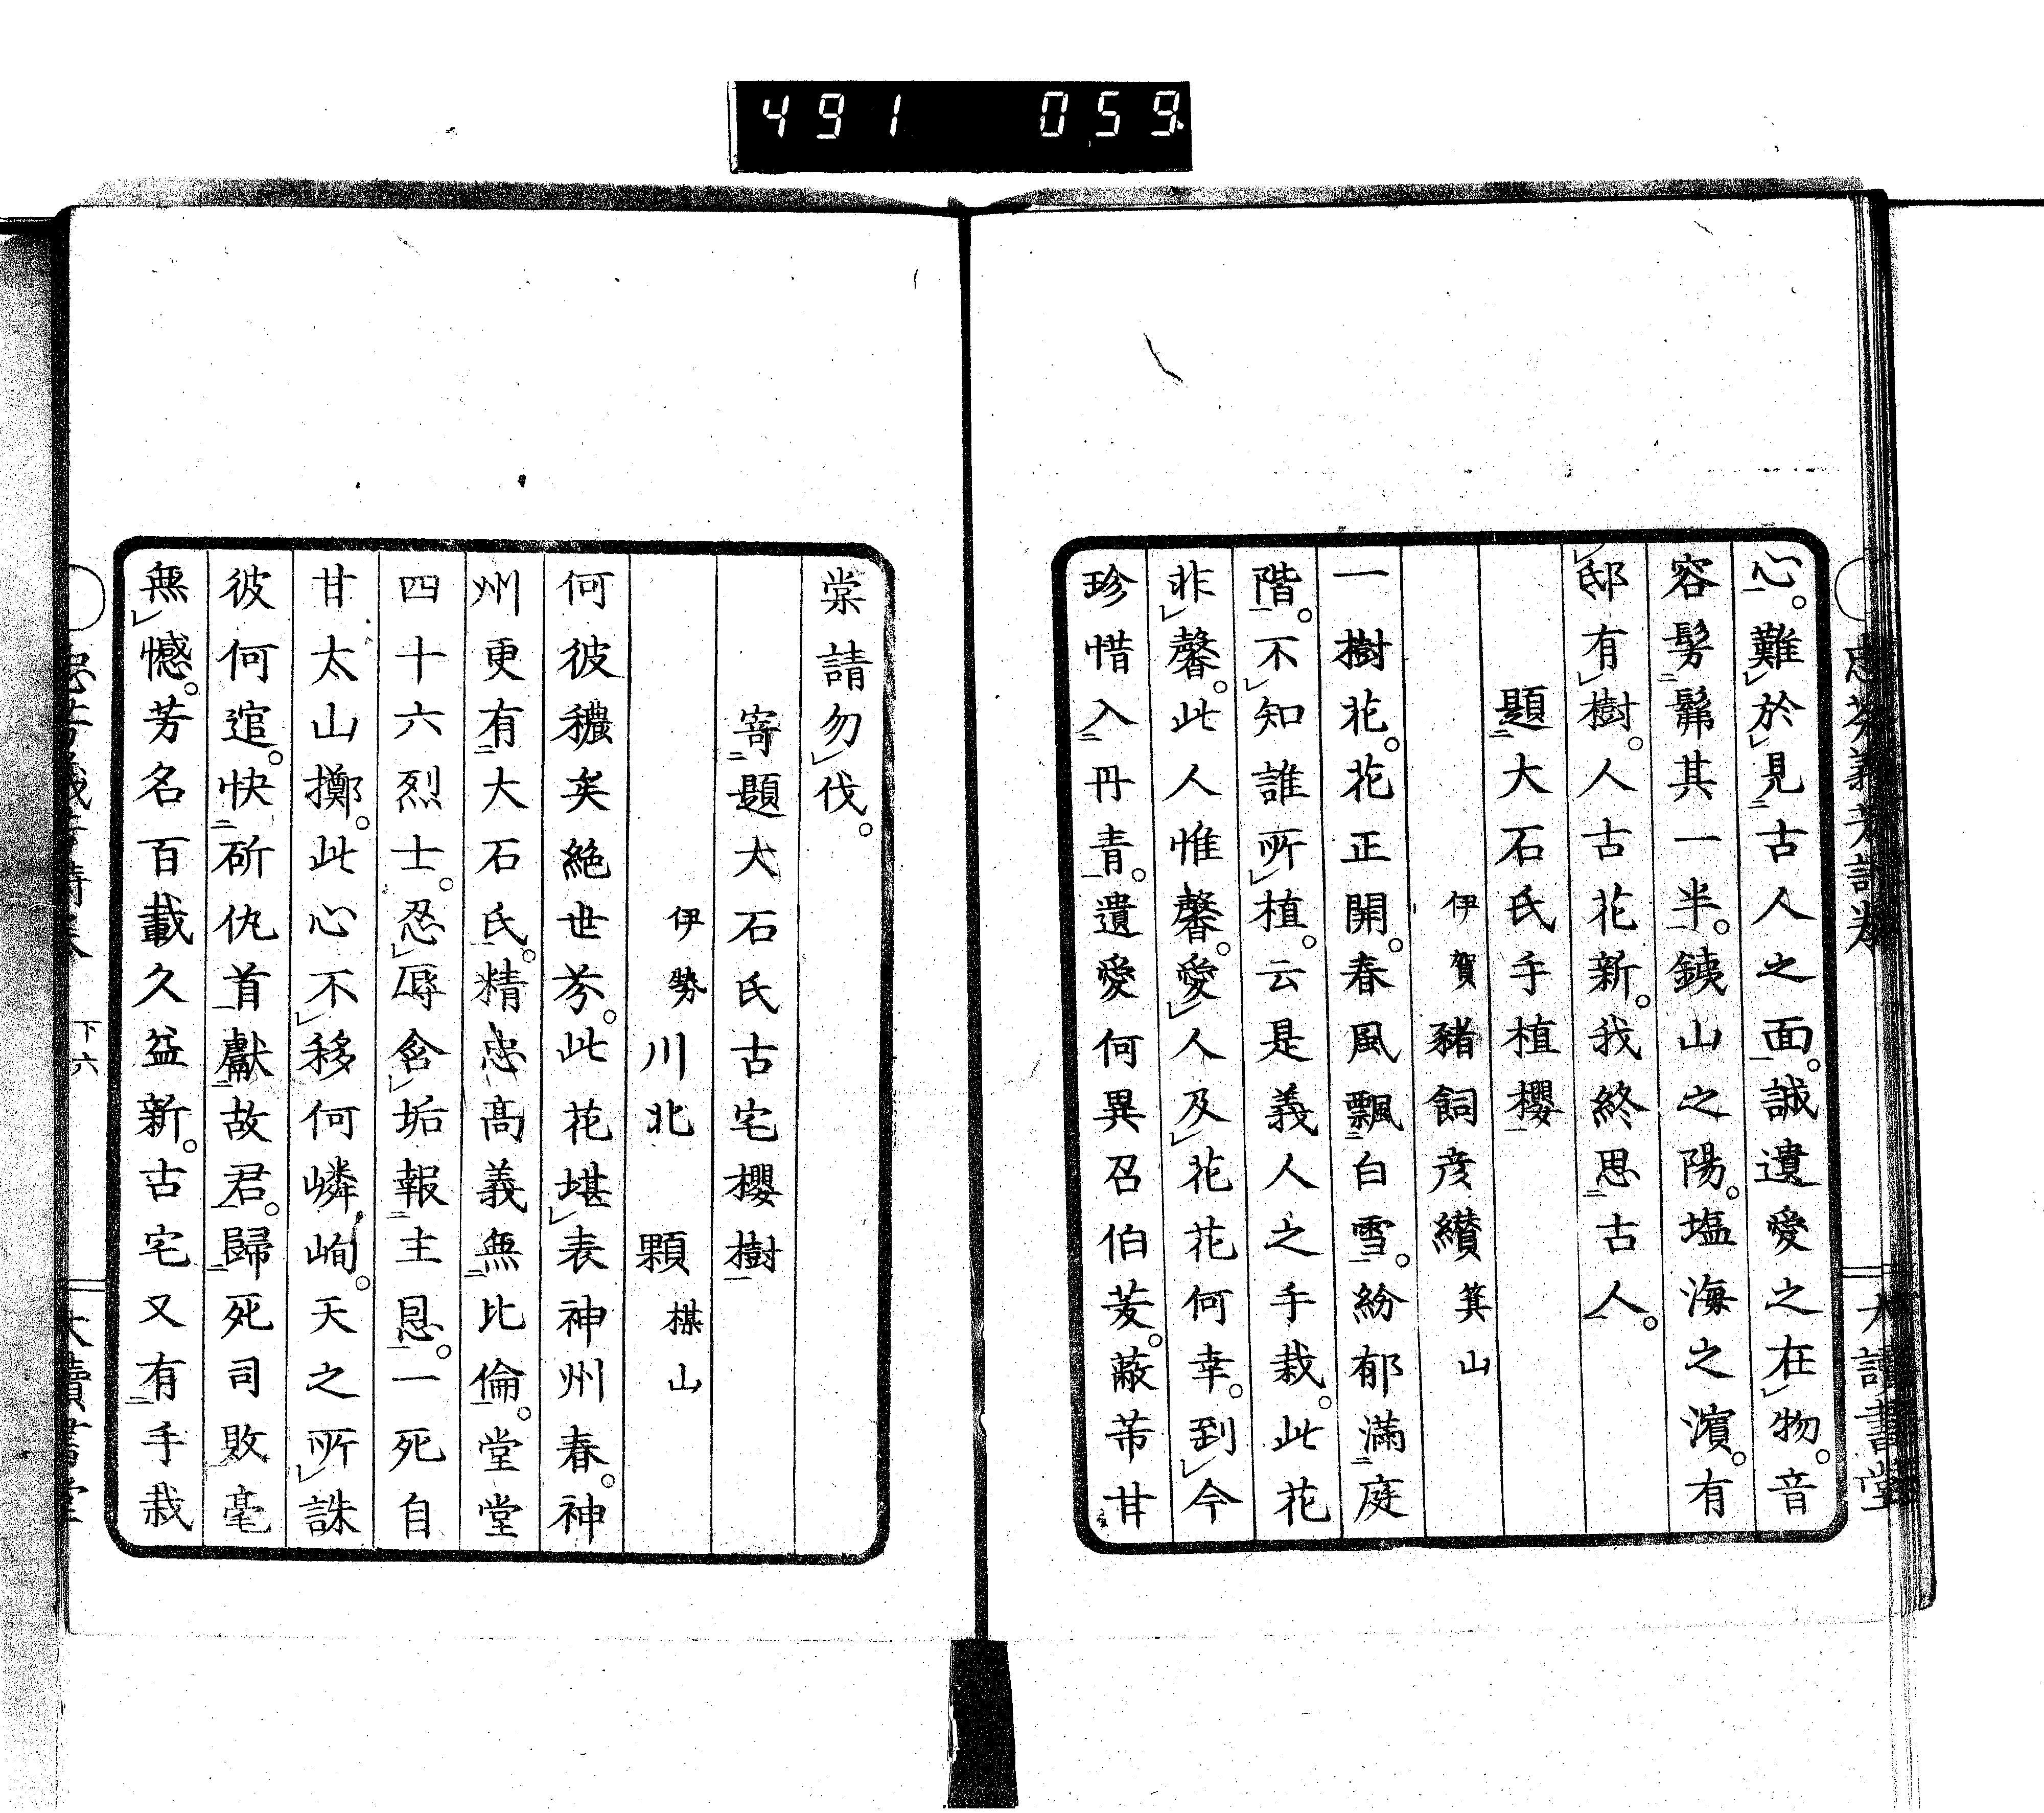 491 059
心。難於見古人之面。誠遺愛之在物。音
容髣髴其一半。銕山之陽。塩海之濵。有
邸有樹。人古花新。我終思古人。
題大石氏手植櫻
伊賀 豬飼彦纉 箕山
一樹花。花正開。春風飄白雪。紛郁滿庭
階。不知誰所植。云是義人之手栽。此花
非馨。此人惟馨。愛人及花花何幸。到今
珍惜入丹青。遺愛何異召伯茇。蔽芾甘
棠請勿伐。
寄題大石氏古宅櫻樹
伊勢 川北 顆 楳山
何彼穠矣絶世芬。此花堪表神州春。神
州更有大石氏。精忠高義無比倫。堂堂
四十六烈士。忍辱含垢報主恩。一死自
甘太山擲。此心不移何嶙峋。天之所誅
彼何逭。快斫仇首獻故君。歸死司敗毫
無憾。芳名百載久益新。古宅又有手栽
下六